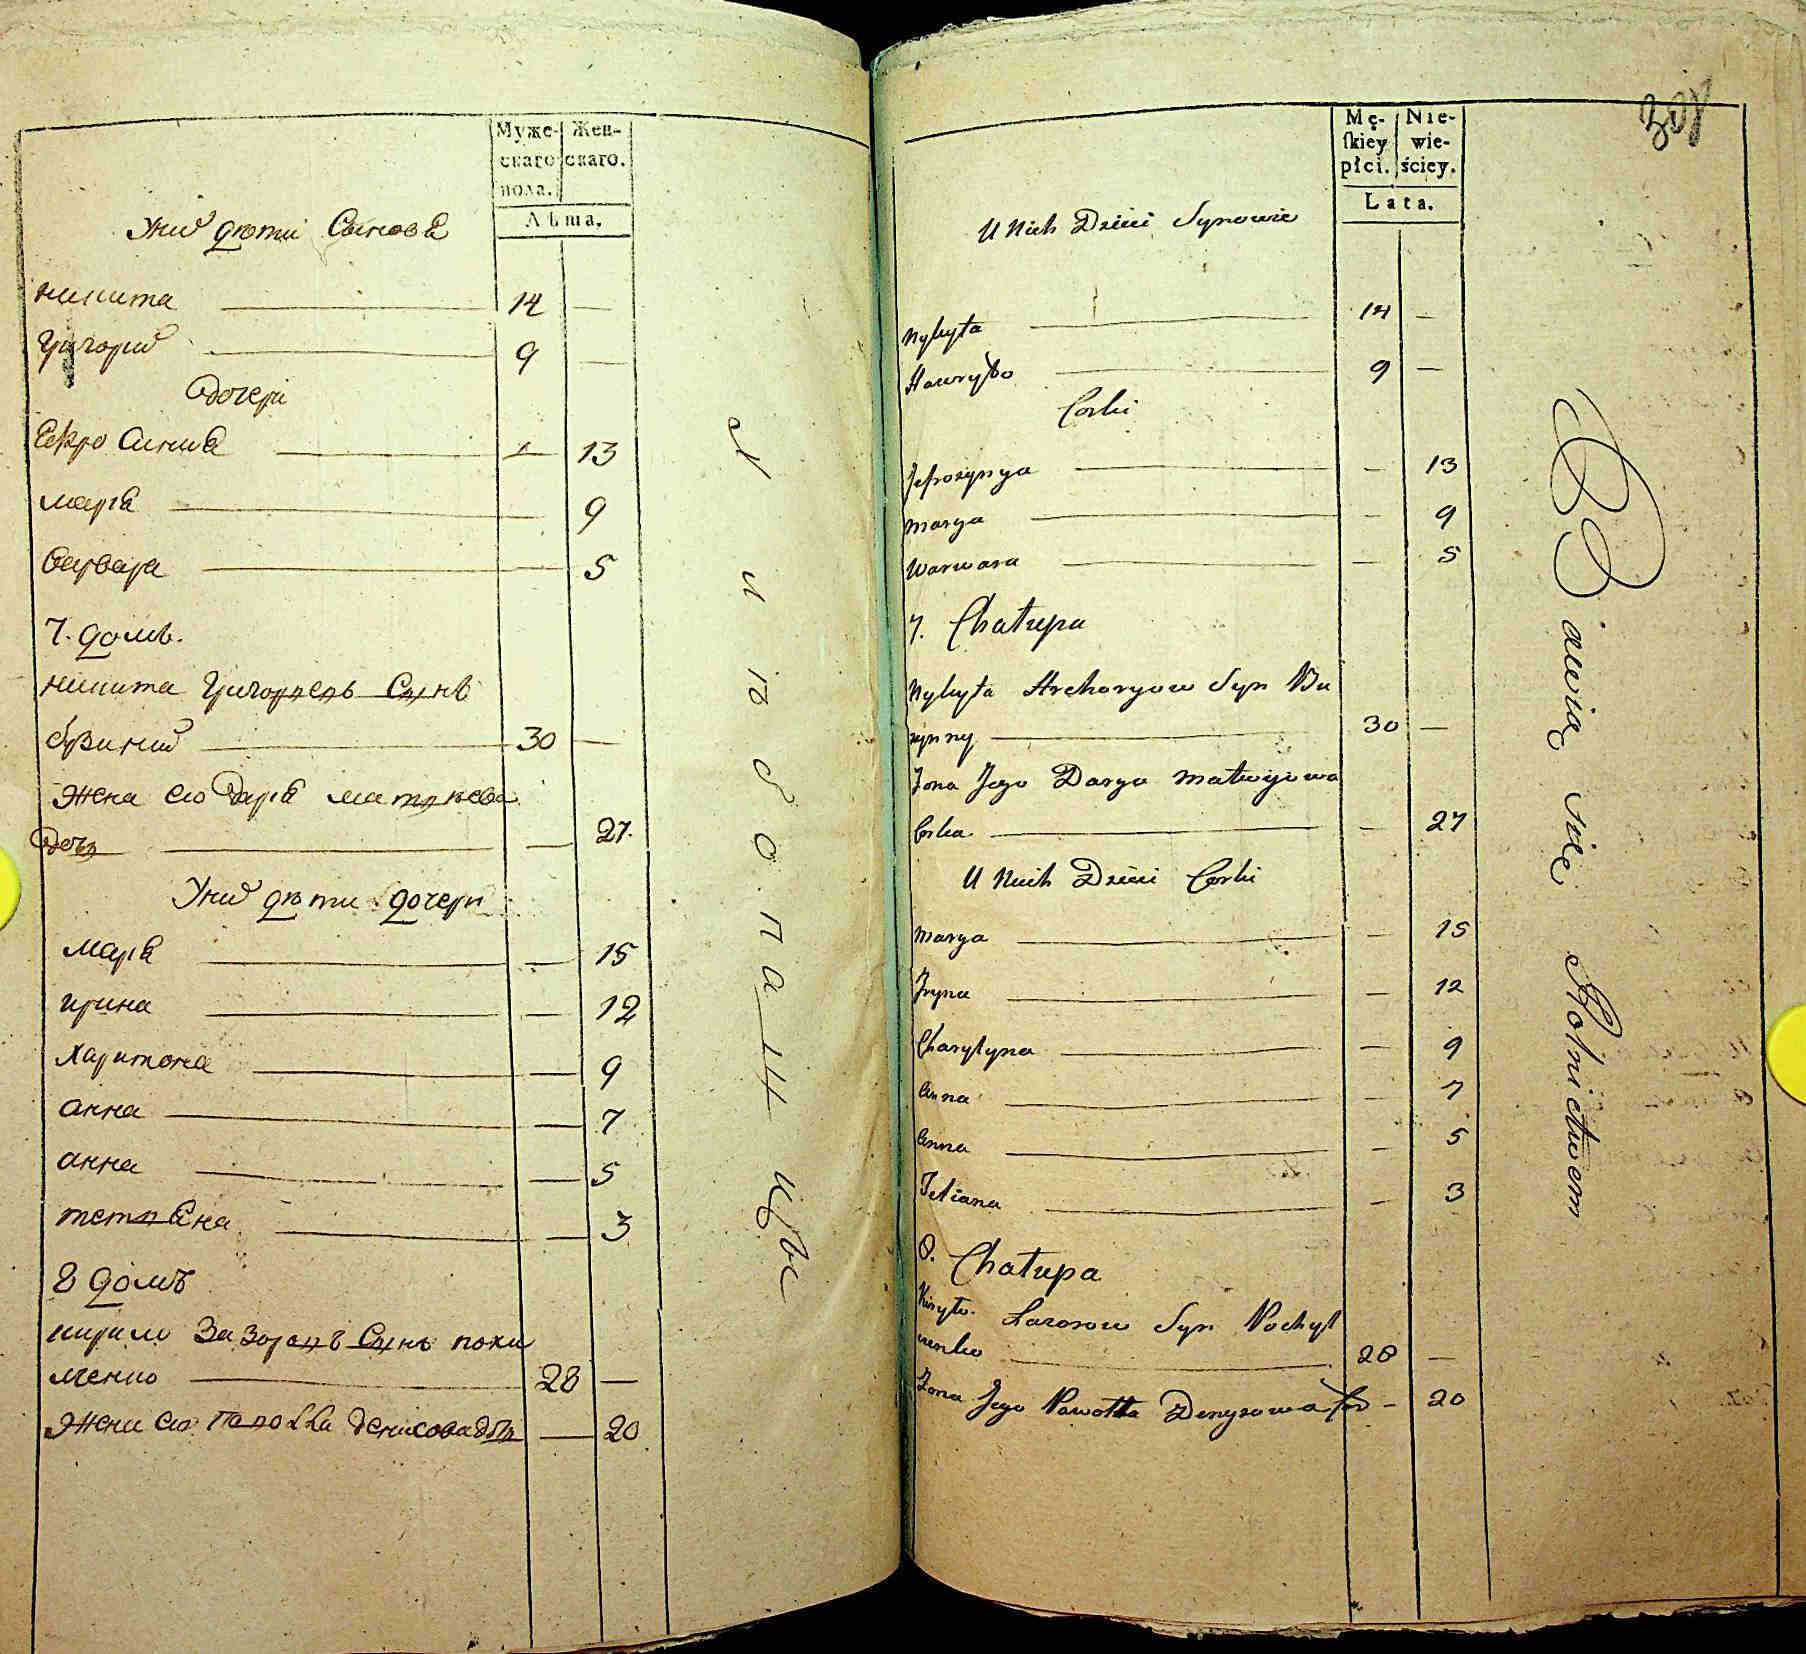 Муже-
скаго
пола.
Жен-
скаго.
Лѣта.
Унй дѣти Сыновѣ
никита 14 —
Григорий 9 —
Дочери
Ефросиниѣ — 13
марїѣ — 9
Варвара — 5
7. домъ.
никита Григориевъ Сынъ
бузиний 30 —
Жена его Дарїѣ матвѣева
Дочь — 27.
Унй дѣти дочери
марїѣ — 15
ирина — 12
Харитона — 9
анна — 7
анна — 5
тетѣна — 3
8 домъ
кирило Сынъ похи
ленко 28 —
Жена его денисова дочь — 20
Mę-
skiey
płci.
Nie-
wie-
ściey.
Lata.
U Nich Dzieci Synowie
Nykyta 14 —
Hawryło 9 —
Corki
Jefrozynya — 13
Marya — 9
Warwara — 5
7. Chałupa
Nykyta Hrehoryow Syn Bu
zynny 30 —
Żona Jego Darya Matwijowa
Corka — 27
U Nich Dzieci Corki
Marya — 15
Jryna — 12
Charytyna — 9
Anna — 7
Anna — 5
Tetiana — 3
8. Chałupa
Kiryło Lazorow Syn Pochyl
enko 28 —
Żona Jego Denysowa Cor — 20
Bawią się Rolnictwem